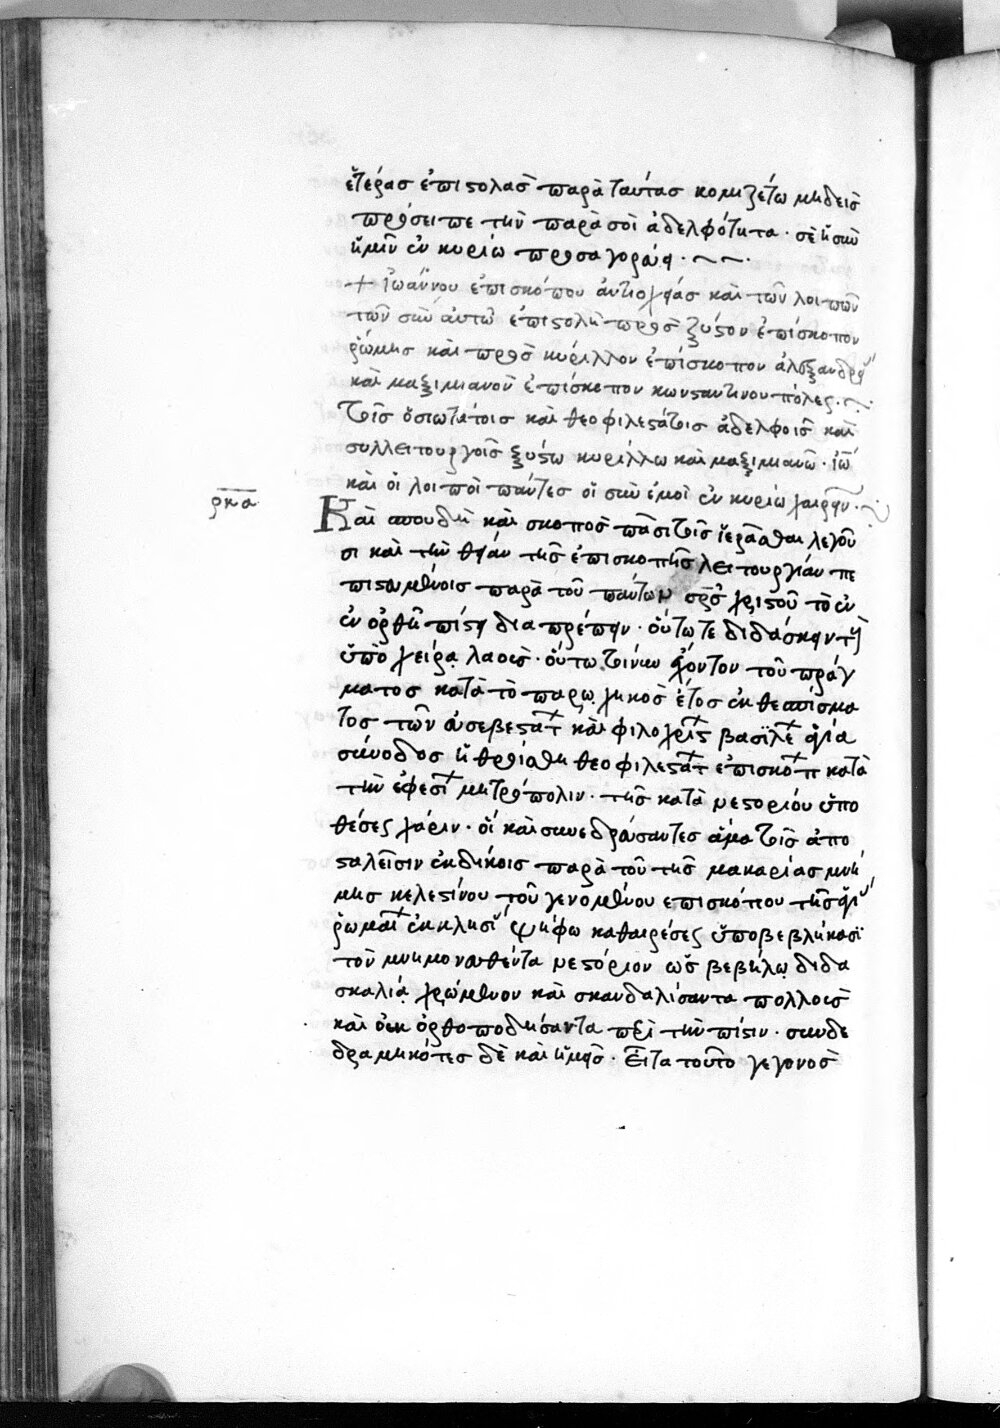 ἑτέρας ἐπιστολὰς παρὰ ταύτας κομιζέτω μηδεὶς
πρόσειπε τὴν παρὰ σοὶ ἀδελφότητα · σὲ ἡ σὺν
ἡμῖν ἐν κυρίω προσαγορεύει ·
+ Ἰωάννου ἐπισκόπου ἀντιοχείας καὶ τῶν λοιπῶν
τῶν σὺν αὐτῶ ἐπιστολὴ πρὸς ξύστον ἐπίσκοπον
ῥώμης καὶ πρὸς κύριλλον ἐπίσκοπον ἀλεξανδρεί
καὶ μαξιμιανὸν ἐπίσκοπον κωνσταντινουπόλεως ·
Τοῖς ὁσιωτάτοις καὶ θεοφιλεστάτοις ἀδελφοῖς καὶ
συλλειτουργοῖς ξύστω κυρίλλω καὶ μαξιμιανῶ · ἰω
καὶ οἱ λοιποὶ πάντες οἱ σὺν ἐμοὶ ἐν κυρίω χαίρειν ·
ρκα
Καὶ σπουδὴ καὶ σκοπὸς πᾶσι τοῖς ἱερᾶσθαι λεχοῦ
σι καὶ τὴν θείαν τῆς ἐπισκοπῆς λειτουργίαν πε
πιστευμένοις παρὰ τοῦ πάντων σρς χριστοῦ τὸ ἐν
ἐν ὀρθῆ πίστει διαπρέπειν · οὕτω τε διδάσκειν τοὺς
ὑπὸ χεῖρα λαοὺς · οὕτω τοίνυν ἔχοντος τοῦ πράγ
ματος κατὰ τὸ παρωχηκὸς ἔτος ἐκ θεσπίσμα
τος τῶν εὐσεβεστατ καὶ φιλοχριστ βασιλε ἁγία
σύνοδος ἠθροίσθη θεοφιλεστατ ἐπισκοπ κατὰ
τὴν ἐφεσι μητρόπολιν · τῆς κατὰ νεστορίου ὑπο
θέσεως χάριν · οἳ καὶ συνεδρεύσαντες ἅμα τοῖς ἀπο
σταλεῖσιν ἐκδίκοις παρὰ τοῦ τῆς μακαρίας μνή
μης κελεστίνου τοῦ γενομένου ἐπισκόπου τῆς ἁγι
ῥωμαι ἐκκλησι ψήφω καθαιρέσεως ὑποβεβλήκασι
τὸν μνημονευθέντα νεστόριον ὡς βεβήλω διδα
σκαλία χρώμενον καὶ σκανδαλίσαντα πολλοὺς
καὶ οὐκ ὀρθοποδήσαντα περὶ τὴν πίστιν · συνδε
δραμηκότες δὲ καὶ ἡμεῖς · Εἶτα τοῦτο γεγονὸς